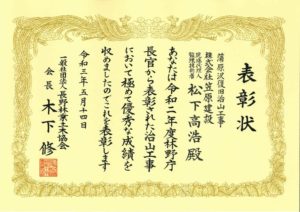 表彰状
蒲原沢復旧治山工事
株式会社笠原建設
現場代理人
監理技術者
松下高浩殿
あなたは令和二年度林野庁
長官から表彰された治山工事
において極めて優秀な成績を
収めましたのでこれを表彰します
令和三年五月十四日
一般社団法人長野県林業土木協会
会長 木下 修